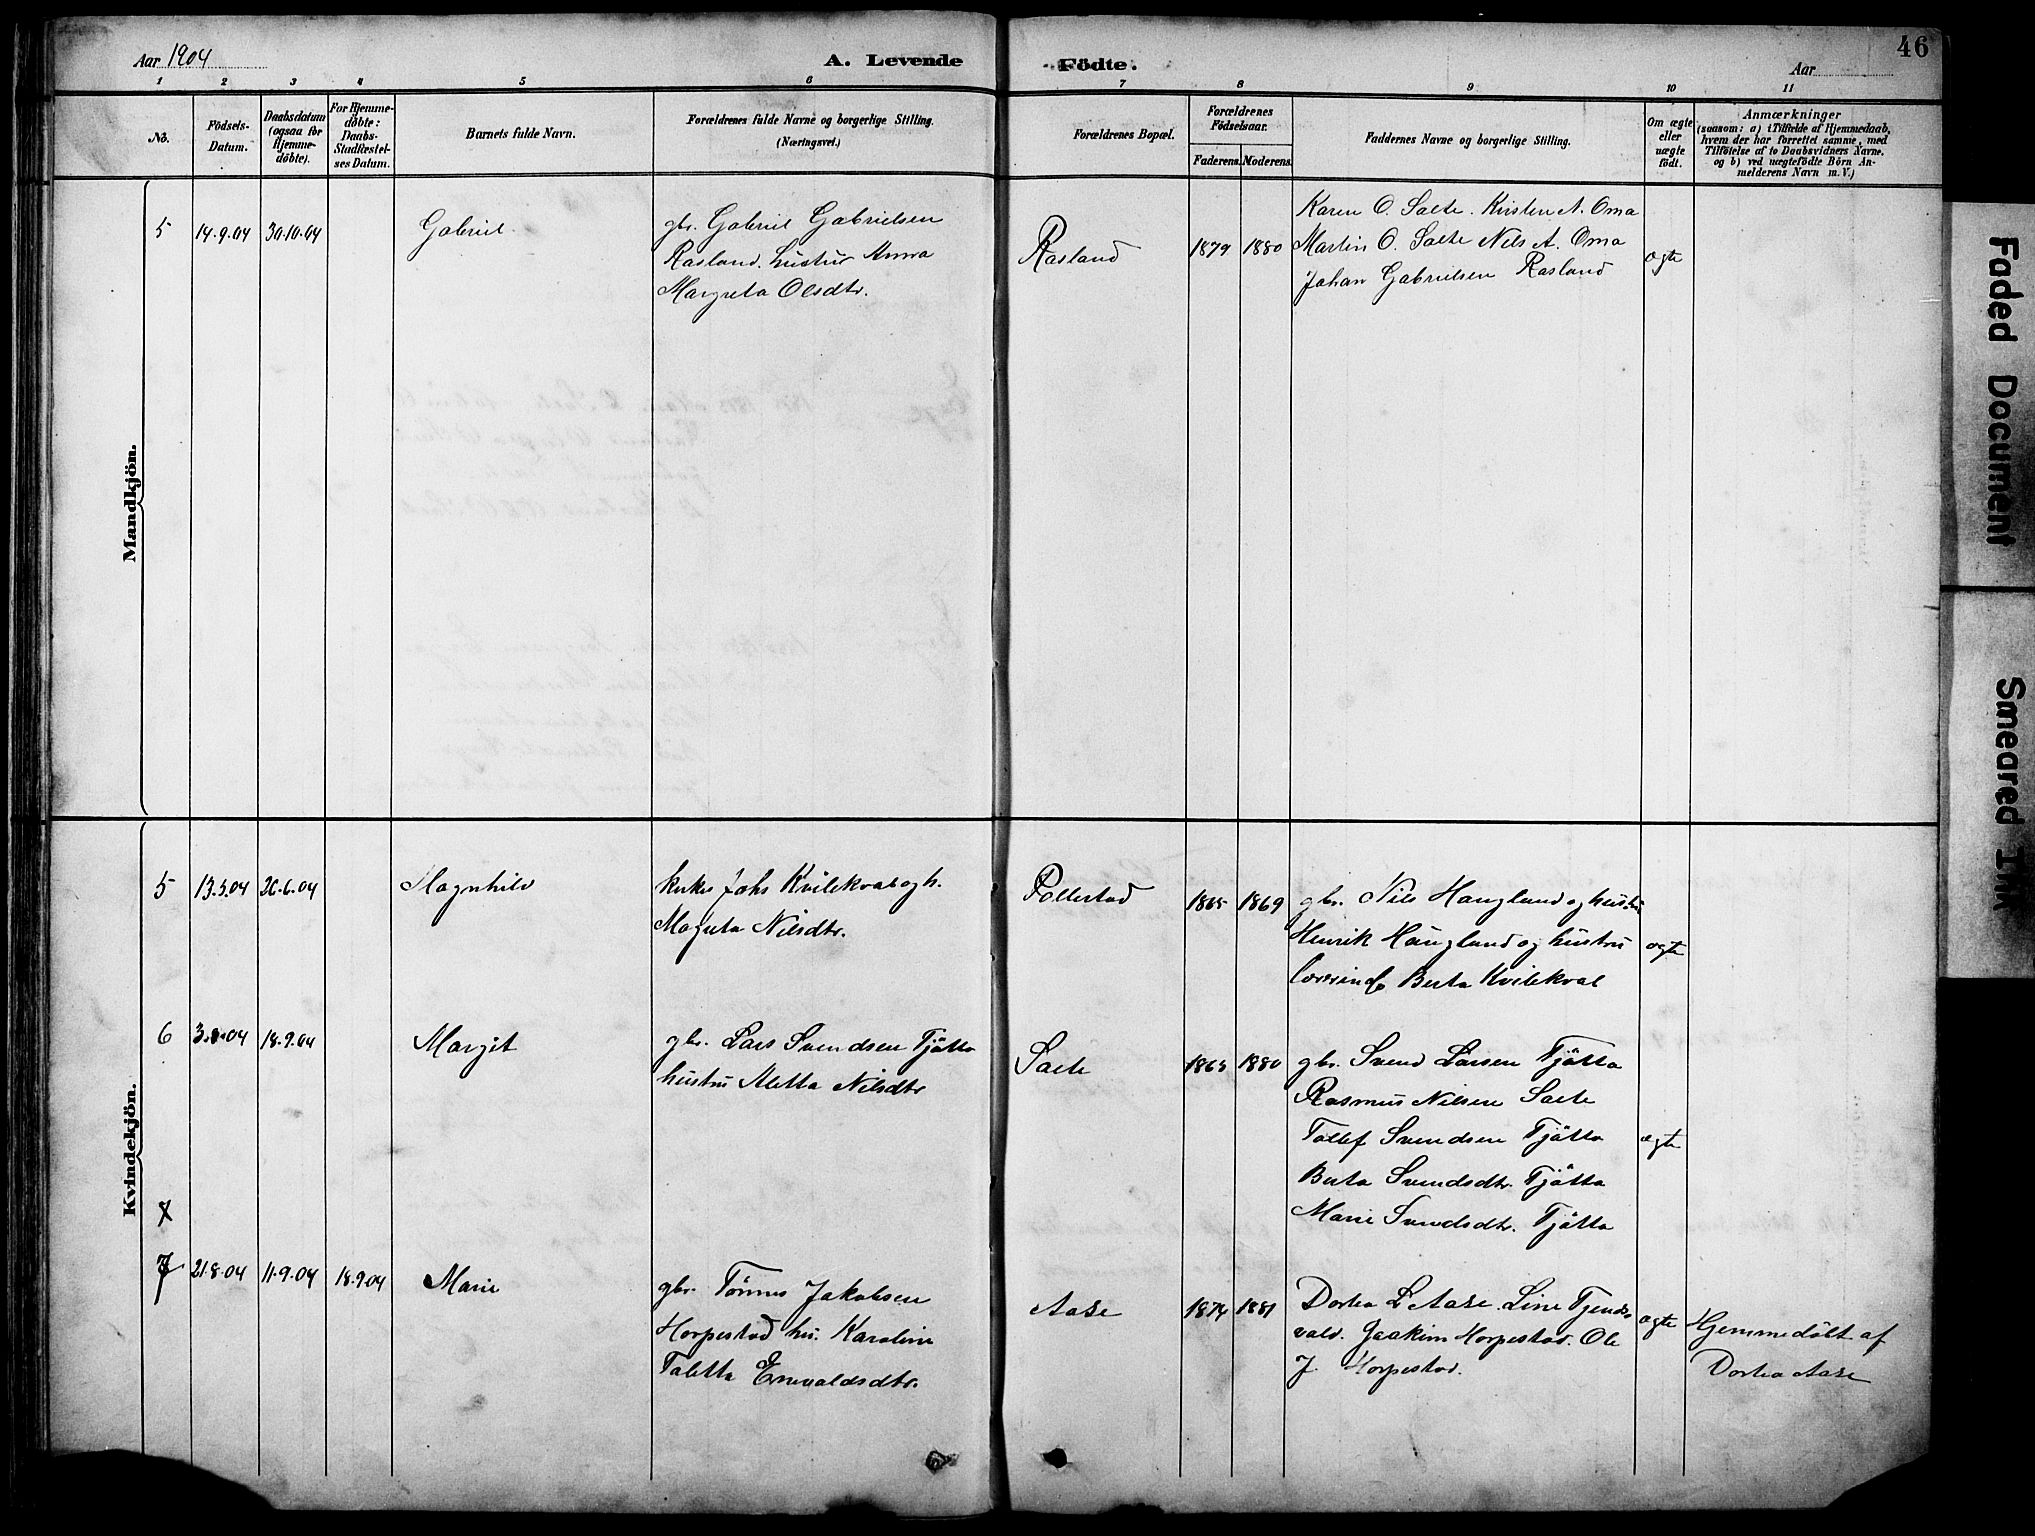 46
Aar 1904
A. Levende Födte.
Aar
1 2 3 4 5 6 7 8 9 10 11
No.
Födsels-
Datum.
Daabsdatum
(ogsaa for
Hjemme-
døbte).
For Hjemme-
døbte:
Daabs-
Stadfæstel-
ses Datum.
Barnets fulde Navn.
Forældrenes fulde Navne og borgerlige Stilling.
(Næringsvei.)
Forældrenes Bopæl.
Forældrenes
Födselsaar.
Faderens. Moderens.
Faddernes Navne og borgerlige Stilling.
Om ægte
eller
uægte
födt.
Anmærkninger
(saasom: a) i Tilfælde af Hjemmedaab,
hvem der har forrettet samme, med
Tilføielse af to Daabsvidners Navne,
og b) ved uægtefödte Börn An-
melderens Navn m. V.)
Mandkjön.
5 14.9.04 30.10.04 Gabriel
gbr. Gabriel Gabrielsen
Rasland. hustru Anna
Margreta Olsdtr.
Rasland 1879 1880
Karen O. Salte. Kirsten A. Oma
Martin O. Salte Nils A. Oma
Johan Gabrielsen Rasland
ægte
Kvindekjön.
5 13.5.04 26.6.04 Magnhild
Johs Kvilekval og h.
Magreta Nilsdtr.
Pollestad 1865 1869
gbr. Nils Haugland og hustru
Henrik Haugland og hustru
Berta Kvilekval
ægte
6 18.9.04 Margit
gbr. Lars Svendsen Tjøtta
hustru Metta Nilsdtr
Salte 1865 1880
gbr. Svend Larsen Tjøtta
Rasmus Nilsen Salte
Tollef Svendsen Tjøtta
Berta Svendsdtr. Tjøtta
Marie Svendsdtr. Tjøtta
ægte
7
7 21.8.04 11.9.04 18.9.04 Marie
gbr. Tønnes Jakobsen
Horpestad hu. Karoline
Taletta Enevaldsdtr.
Aase 1874 1881
Dortea L Aase. Line Tjends-
vold. Joakim Horpestad. Ole
J. Horpestad.
ægte
Hjemmedøbt af
Dortea Aase
Faded Document
Smeared Ink